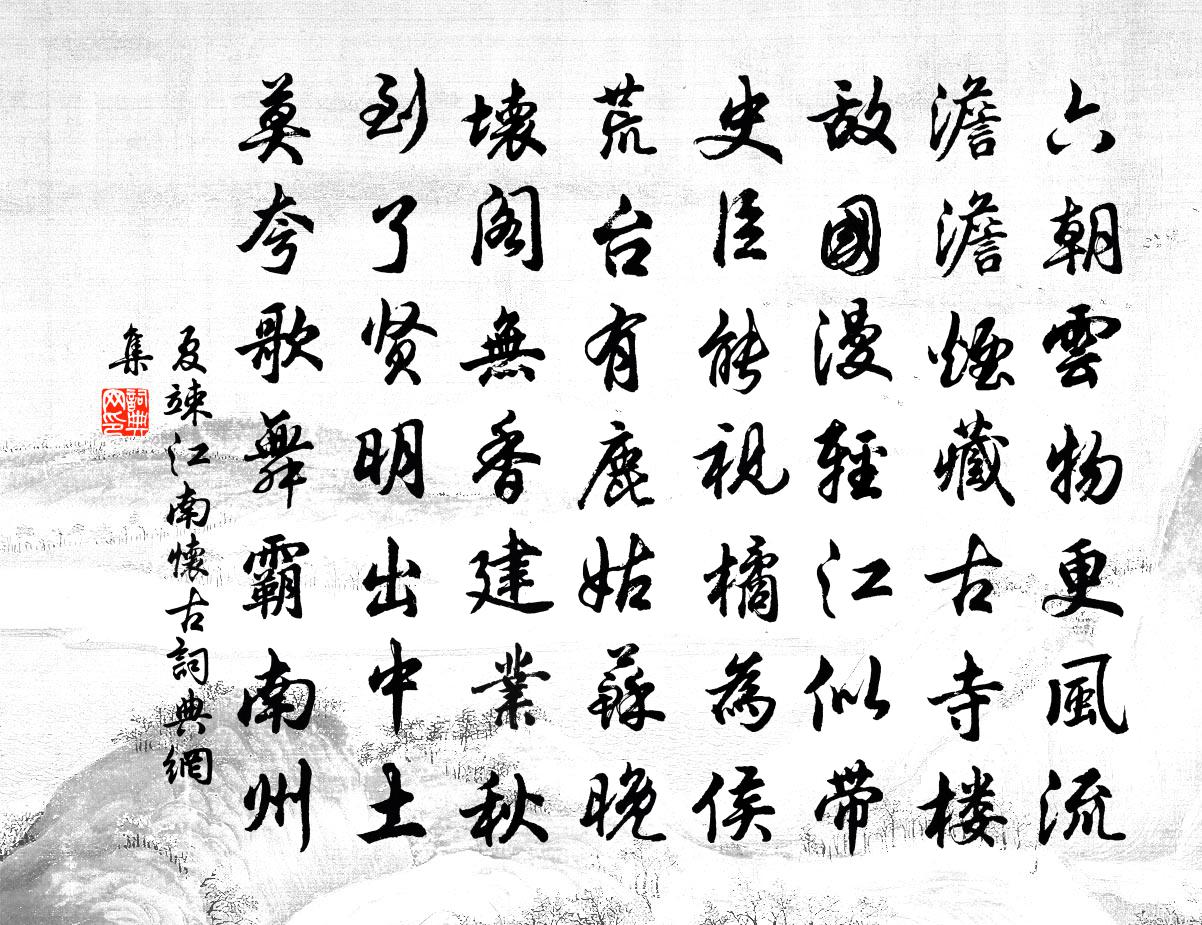 六朝雲物更風流
澹澹煙藏古寺楼
敌國漫輕江似带
史臣能視橘為侯
荒台有鹿姑蘇晚
壊阁無香建業秋
到了贤明出中土
莫夸歌舞霸南州
夏竦江南懷古詞典網
集
詞典
网印